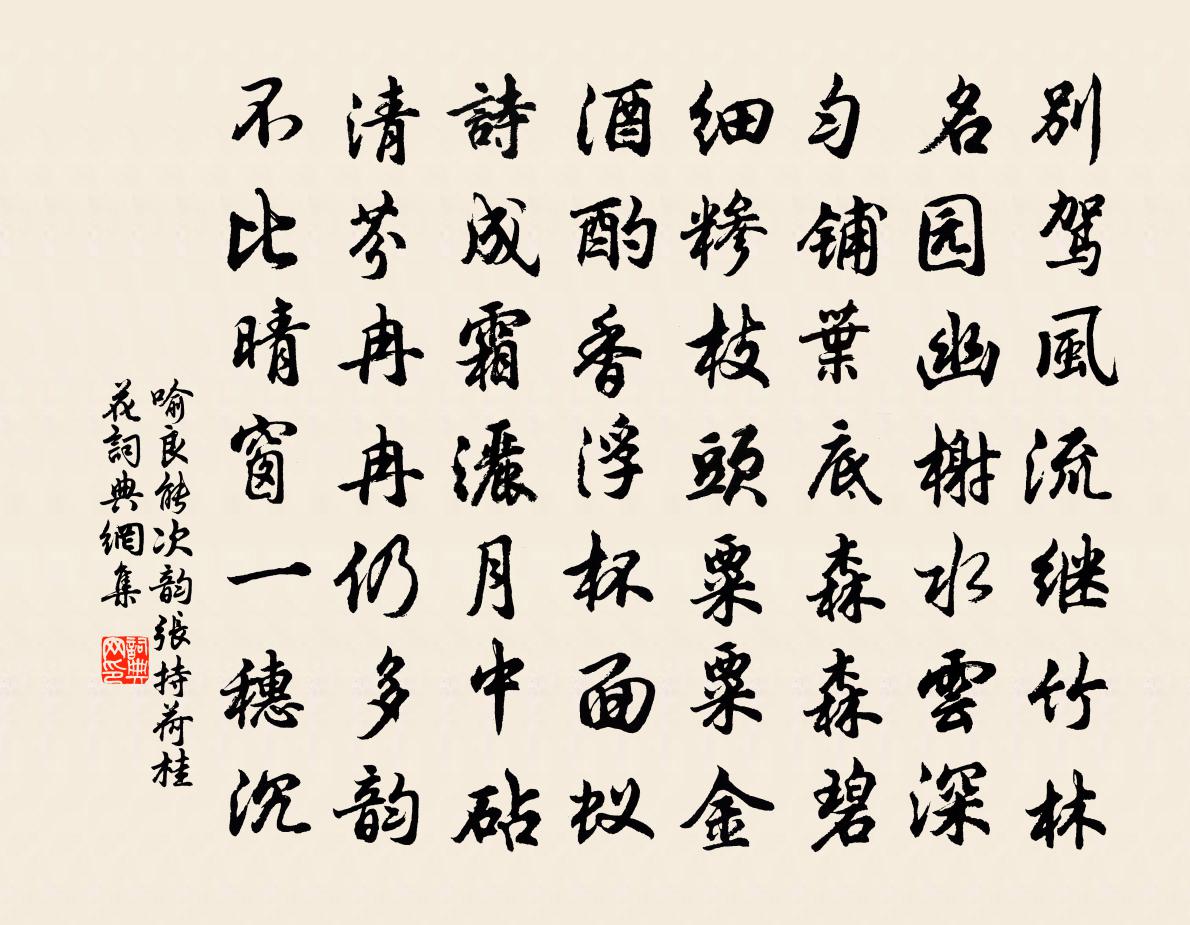 别驾風流继竹林
名园幽榭水雲深
匀铺葉底森森碧
细糁枝頭粟粟金
酒酌香浮杯面蚁
詩成霜灑月中砧
清芬冉冉仍多韵
不比晴窗一穗沉
喻良能次韵張持荷桂
花詞典網集
詞典
网印